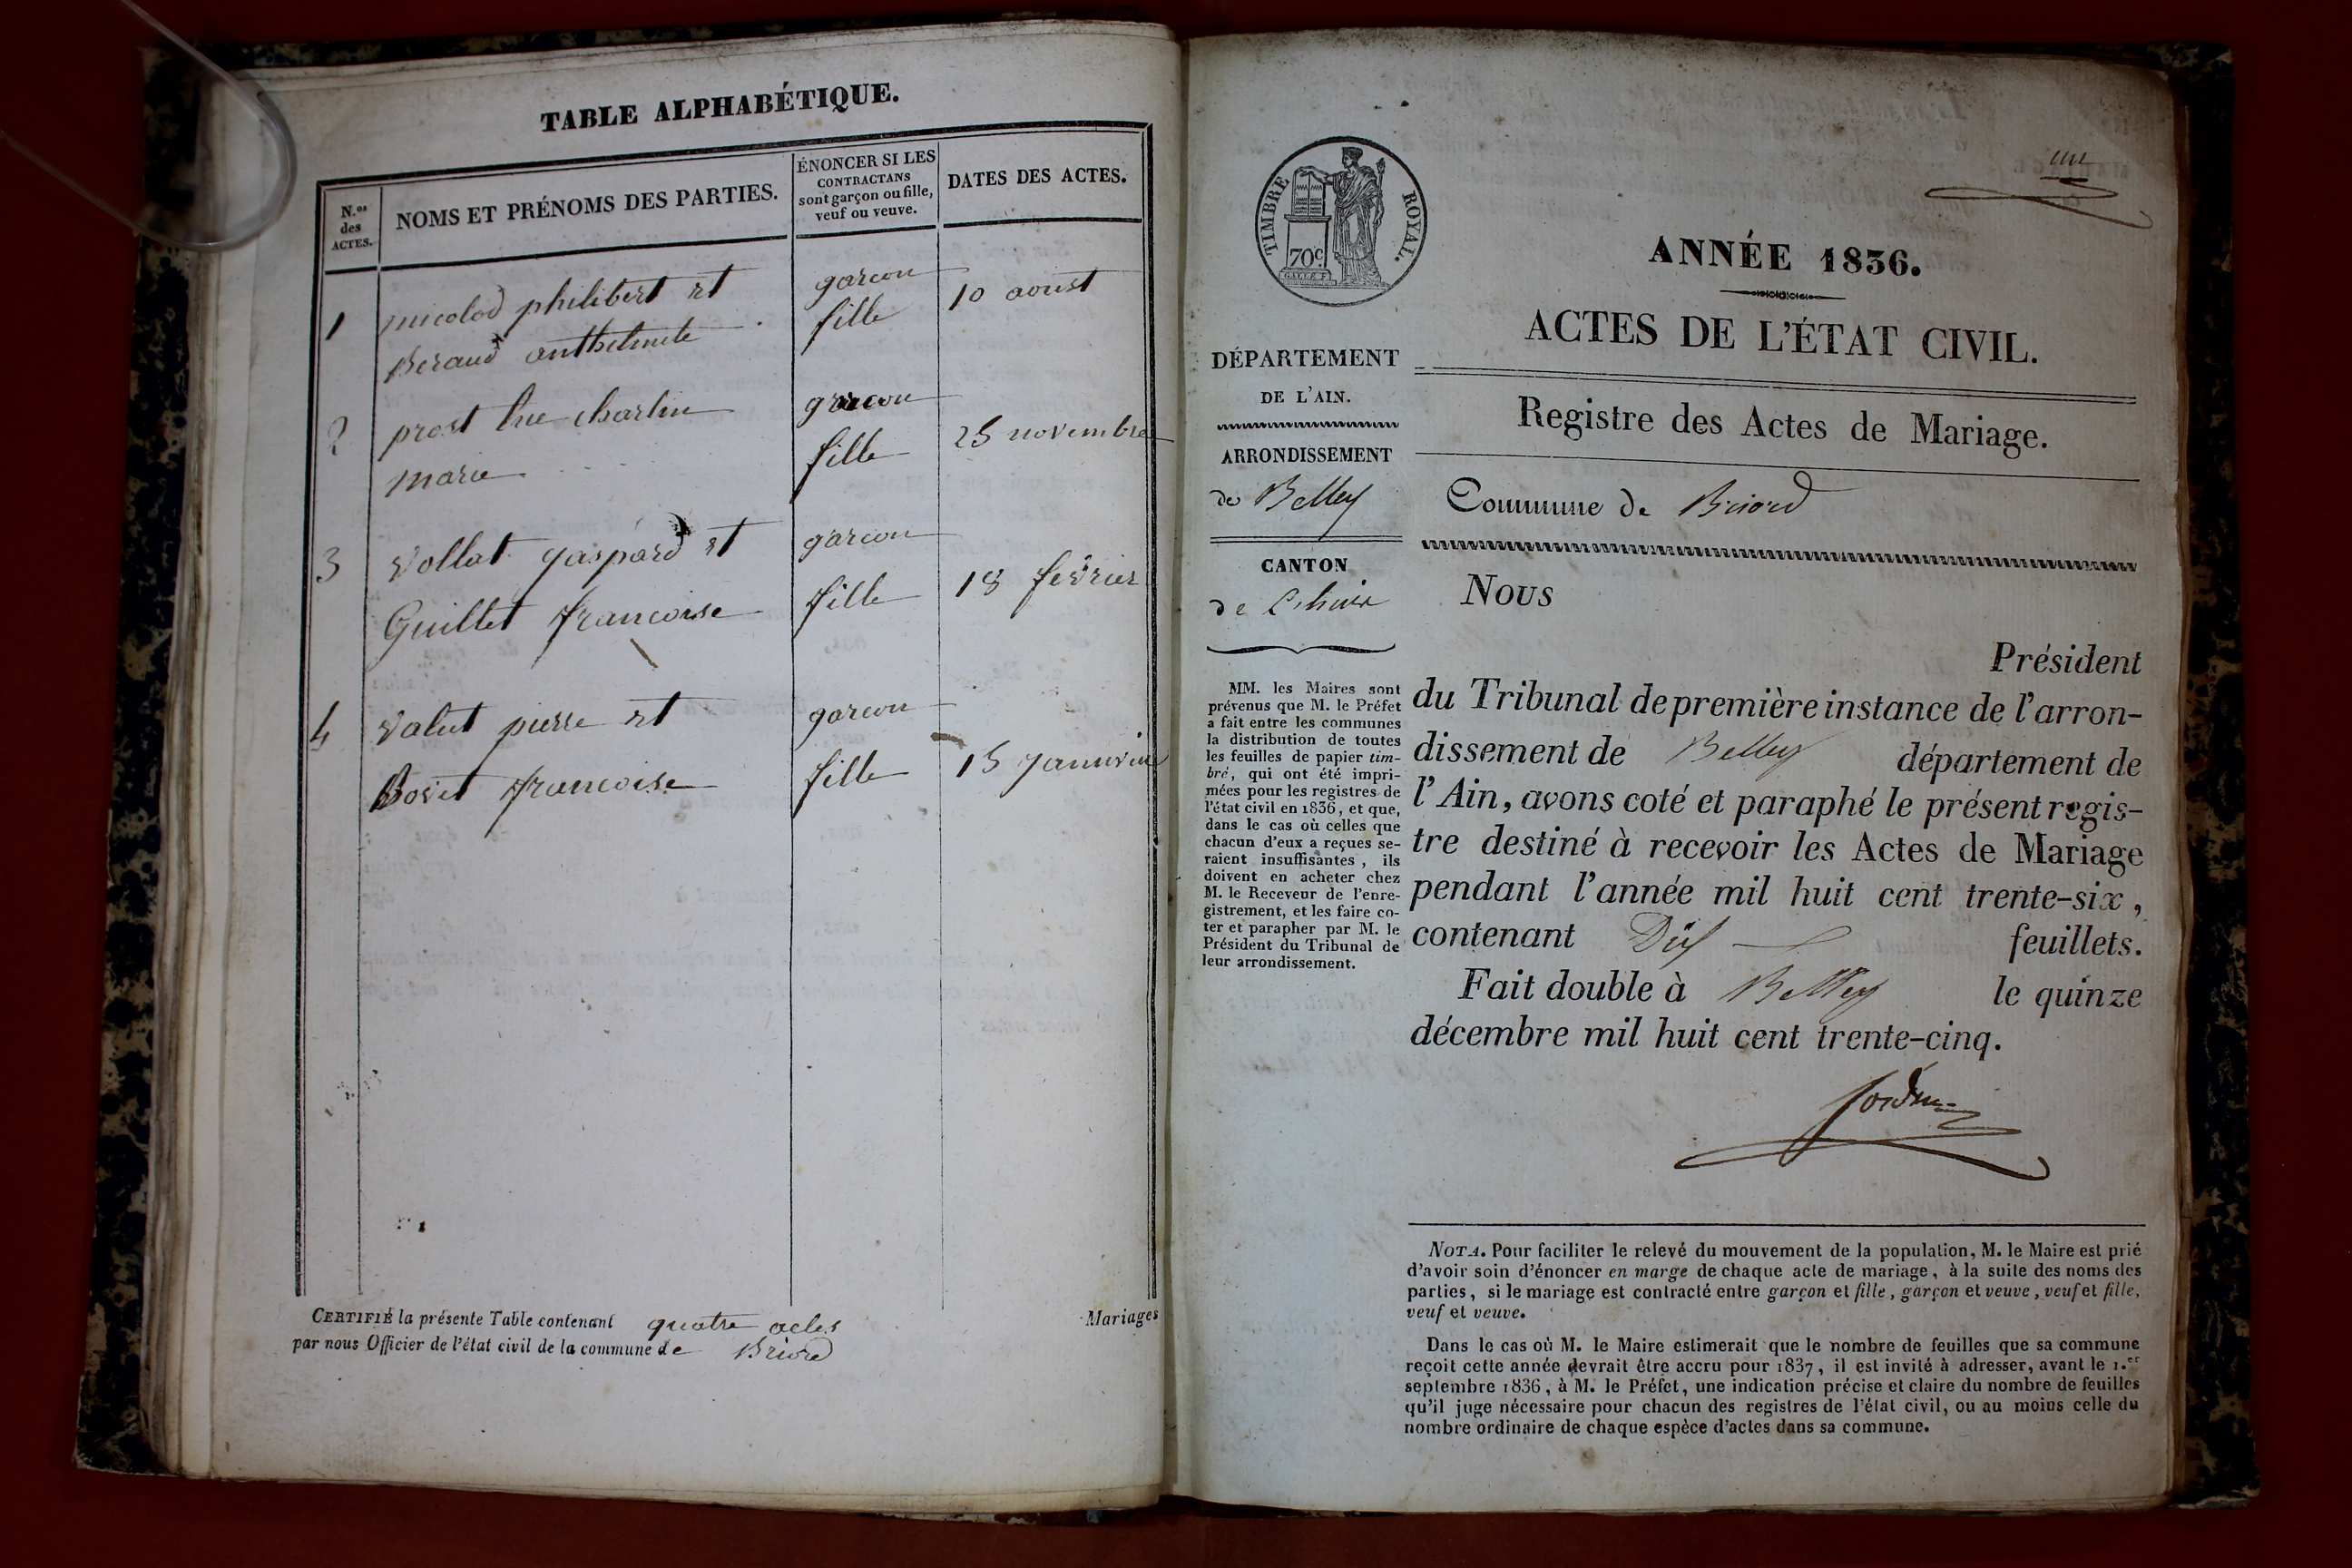 TABLE ALPHABÉTIQUE.
N.os des ACTES.
NOMS ET PRÉNOMS DES PARTIES.
ÉNONCER SI LES
CONTRACTANS
sont garçon ou fille,
veuf ou veuve.
DATES DES ACTES.
1 micolod philibert et garcon 10 aoust
Beraud anthelmete fille
2 prost luc charlin garcon 25 novembre
marie fille
3 Vollat gaspard et garcon
Guillet francoise fille 18 fevrier
4 Valut pierre et garcon
Bovet francoise fille 15 janvier
CERTIFIÉ la présente Table contenant quatre actes
par nous Officier de l'état civil de la commune de Briord
Mariages
un
TIMBRE ROYAL.
70c.
ANNÉE 1836.
ACTES DE L'ÉTAT CIVIL.
Registre des Actes de Mariage.
Commune de Briord
DÉPARTEMENT
DE L'AIN.
ARRONDISSEMENT
de Belley
CANTON
de Lhuis
MM. les Maires sont
prévenus que M. le Préfet
a fait entre les communes
la distribution de toutes
les feuilles de papier tim-
bré, qui ont été impri-
mées pour les registres de
l'état civil en 1836, et que,
dans le cas où celles que
chacun d'eux a reçues se-
raient insuffisantes, ils
doivent en acheter chez
M. le Receveur de l'enre-
gistrement, et les faire co-
ter et parapher par M. le
Président du Tribunal de
leur arrondissement.
Nous
Président
du Tribunal de première instance de l'arron-
dissement de Belley département de
l'Ain, avons coté et paraphé le présent regis-
tre destiné à recevoir les Actes de Mariage
pendant l'année mil huit cent trente-six,
contenant Dix feuillets.
Fait double à Belley le quinze
décembre mil huit cent trente-cinq.
NOTA. Pour faciliter le relevé du mouvement de la population, M. le Maire est prié
d'avoir soin d'énoncer en marge de chaque acte de mariage, à la suite des noms des
parties, si le mariage est contracté entre garçon et fille, garçon et veuve, veuf et fille,
veuf et veuve.
Dans le cas où M. le Maire estimerait que le nombre de feuilles que sa commune
reçoit cette année devrait être accru pour 1837, il est invité à adresser, avant le 1.er
septembre 1836, à M. le Préfet, une indication précise et claire du nombre de feuilles
qu'il juge nécessaire pour chacun des registres de l'état civil, ou au moins celle du
nombre ordinaire de chaque espèce d'actes dans sa commune.